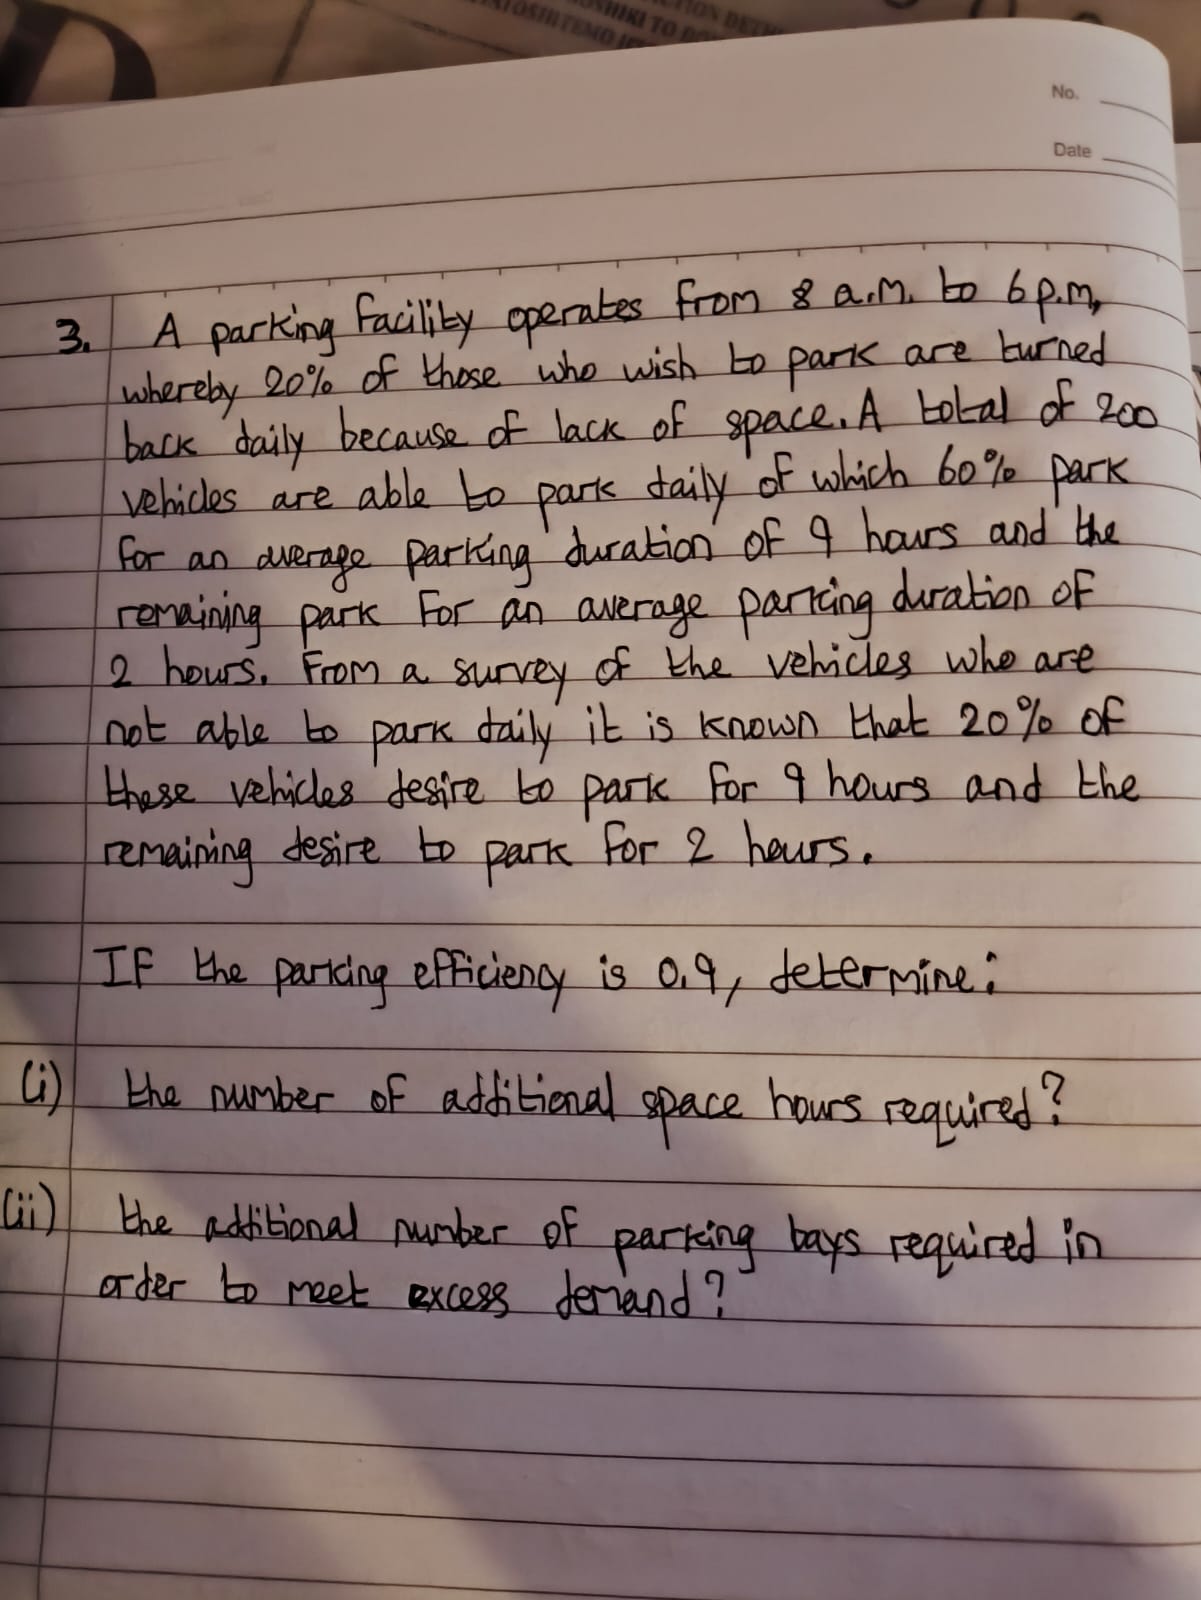 D
SHIKI TO
No.
Date
3. A parking facility operates from 8 a.m. to 6 p.m,
whereby 20% of those who wish to park are turned
back daily because of lack of space. A total of 200
vehicles are able to park daily of which 60% park
for an average parking duration of 9 hours and the
remaining park for an average parking duration of
2 hours. From a survey of the vehicles who are
not able to park daily it is known that 20% of
these vehicles desire to park for 9 hours and the
remaining desire to park for 2 hours.
If the parking efficiency is 0.9, determine:
(i) the number of additional space hours required?
(ii) the additional number of parking bays required in
order to meet excess demand?